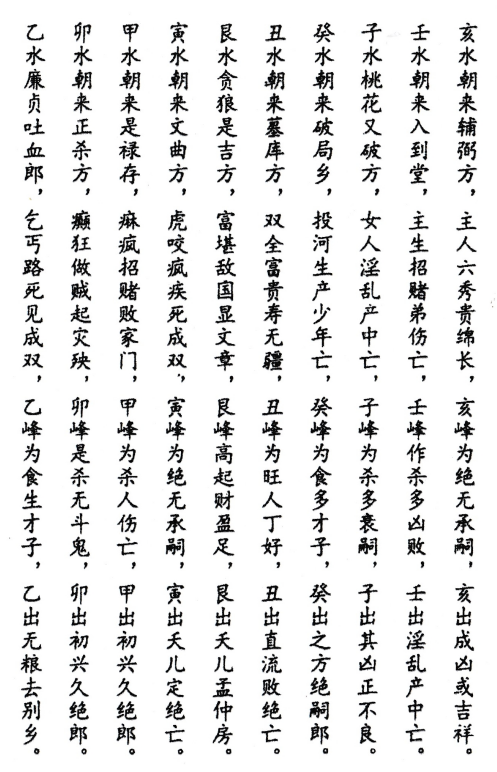 亥水朝来辅弼方，主人六秀贵绵长，亥峰为绝无承嗣，亥出成凶或吉祥。
壬水朝来入到堂，主生招赌弟伤亡，壬峰作杀多凶败，壬出淫乱产中亡。
子水桃花又破方，女人淫乱产中亡，子峰为杀多衰嗣，子出其凶正不良。
癸水朝来破局乡，投河生产少年亡，癸峰为食多才子，癸出之方绝嗣郎。
丑水朝来墓库方，双全富贵寿无疆，丑峰为旺人丁好，丑出直流败绝亡。
艮水贪狼是吉方，富堪敌国显文章，艮峰高起财盈足，艮出夭儿孟仲房。
寅水朝来文曲方，虎咬疯疾死成双，寅峰为绝无承嗣，寅出夭儿定绝亡。
甲水朝来是禄存，麻疯招赌败家门，甲峰为杀人伤亡，甲出初兴久绝郎。
卯水朝来正杀方，癫狂做贼起灾殃，卯峰是杀无斗鬼，卯出初兴久绝郎。
乙水廉贞吐血郎，乞丐路死见成双，乙峰为食生才子，乙出无粮去别乡。